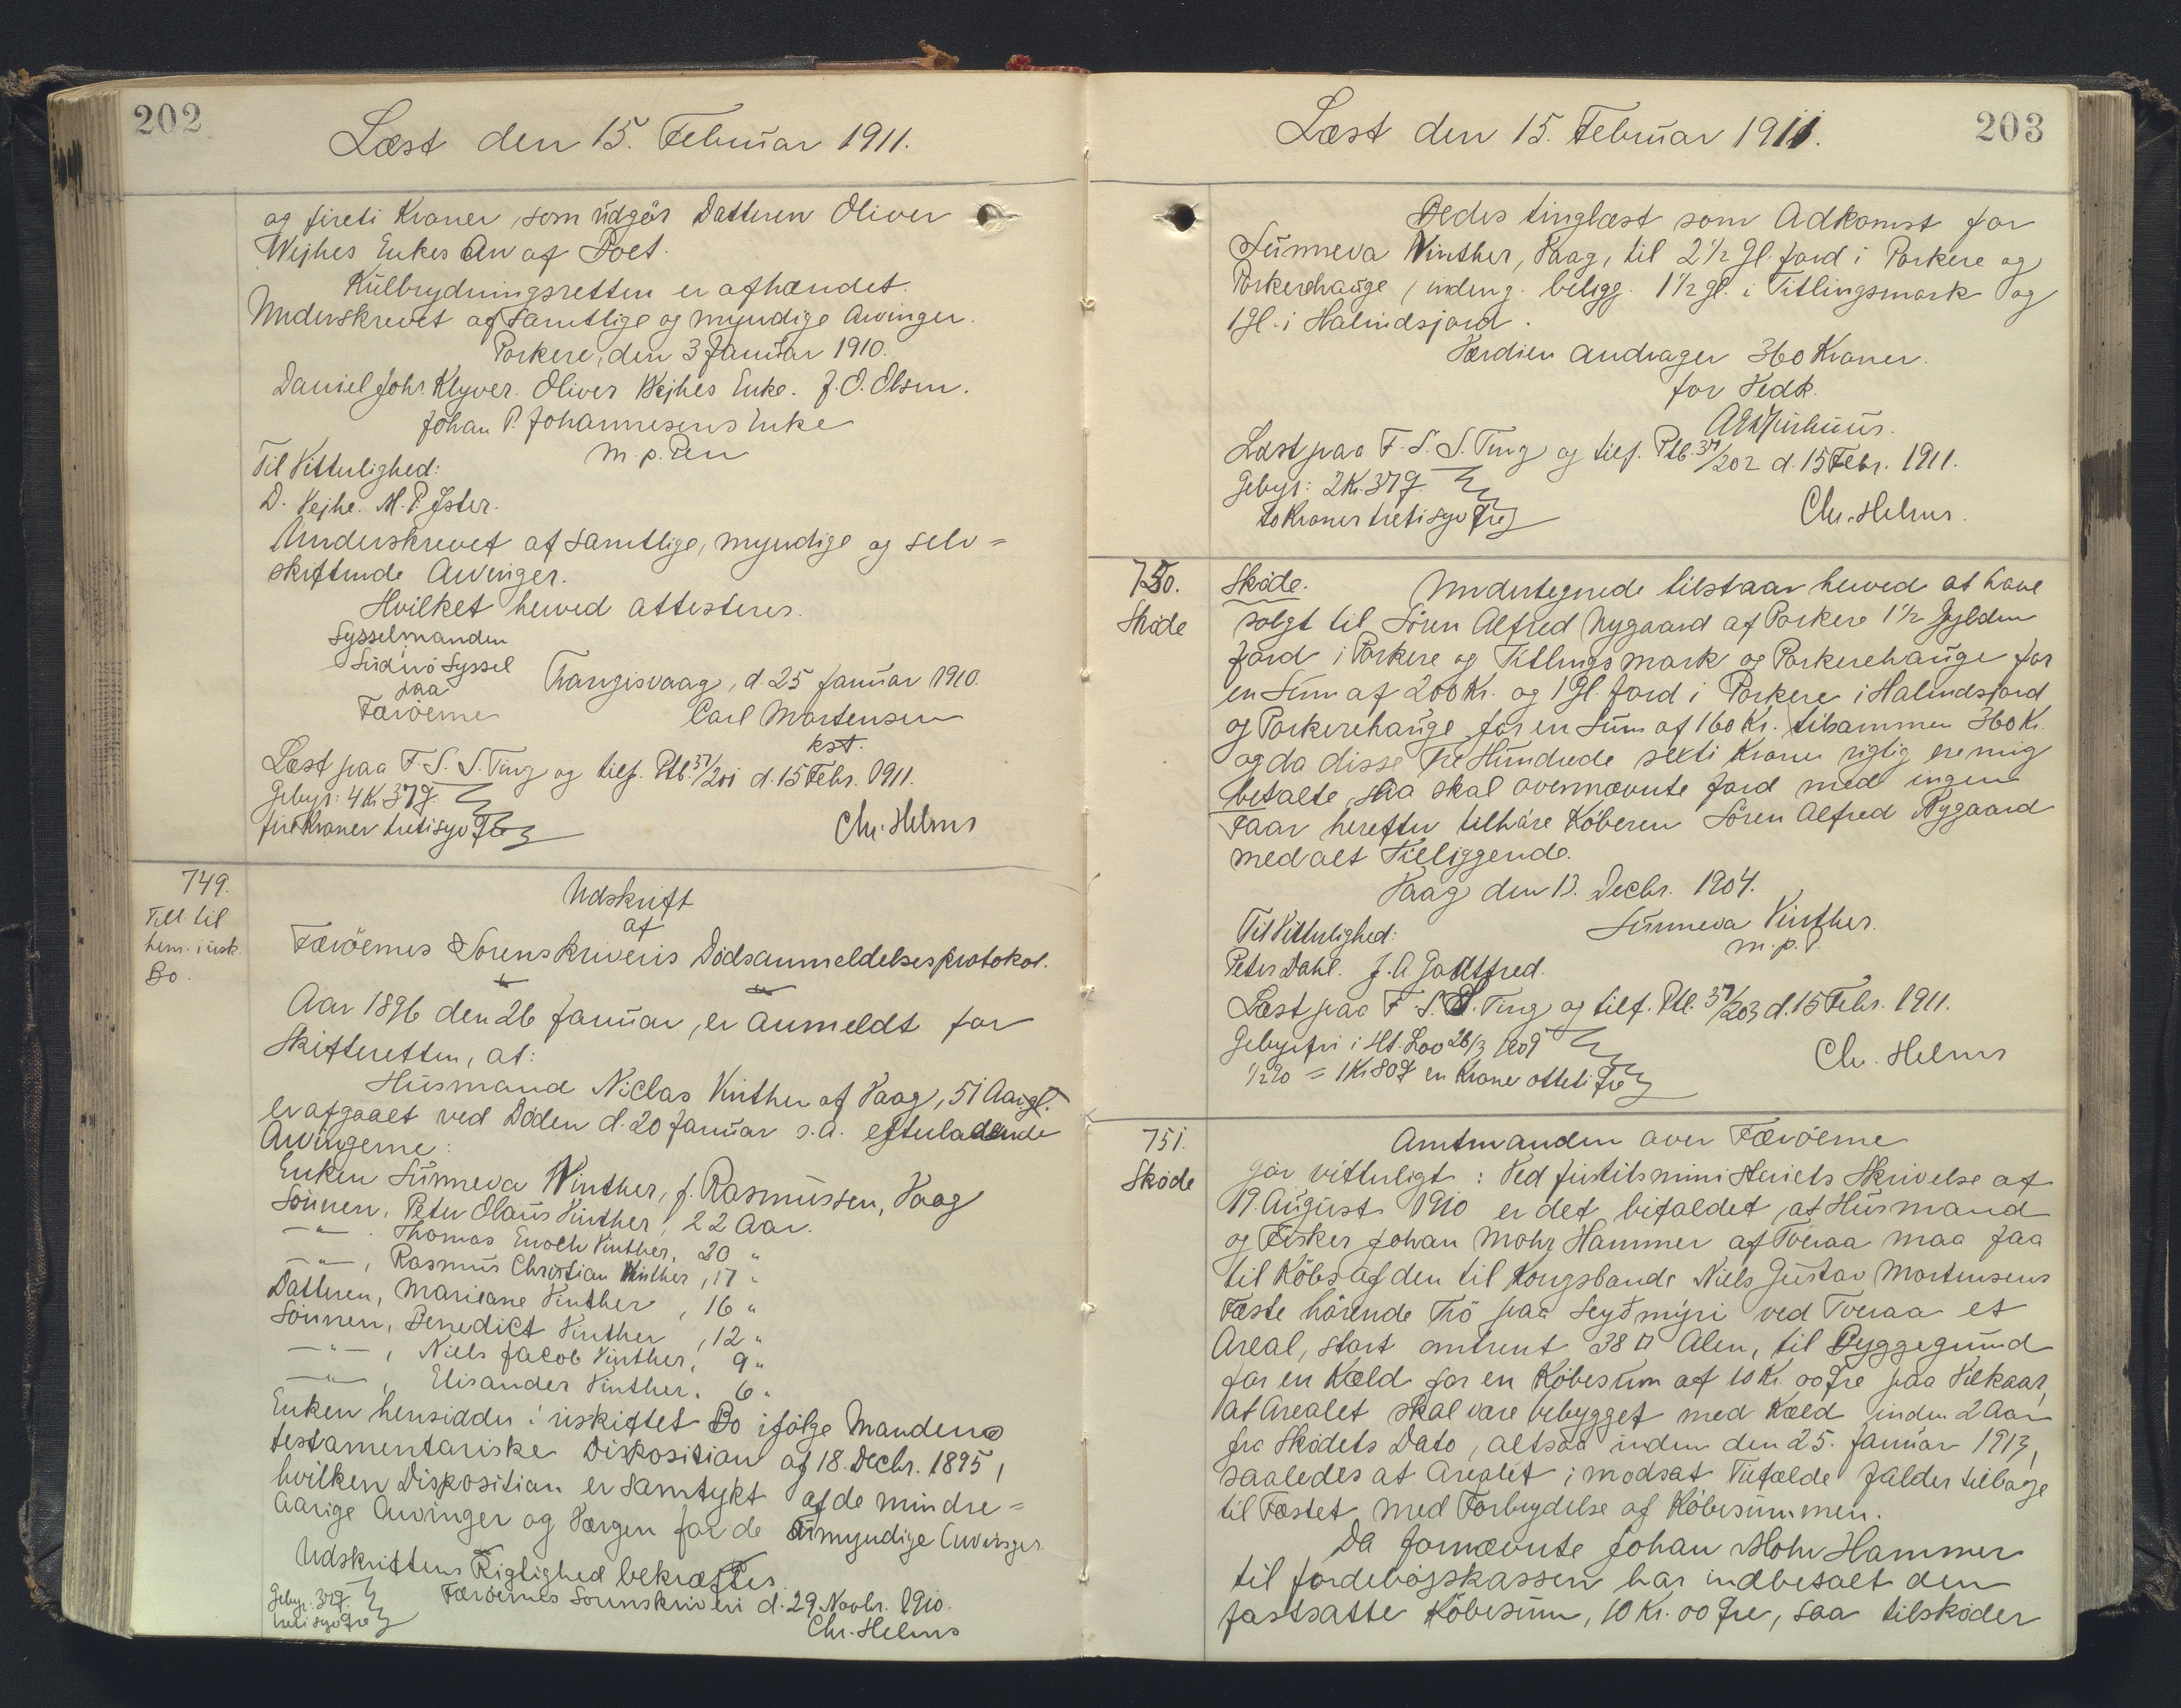 202
Læst den 15. Februar 1911.
og fireti Kroner, som udgør Datteren Oliver
Wejhes Enkes Arv af Boet.
Kulbrydningsretten er afhændet.
Underskrevet af samtlige og myndige Arvinger.
Porkere, den 3 Januar 1910.
Daniel Joh. Klyver. Oliver Wejhes Enke. J. O. Olsen.
Johan P. Johannesens Enke
m. p. Pen
Til Vitterlighed:
D. Vejhe. M. P. Øster.
Underskrevet af samtlige, myndige og selv=
skiftende Arvinger.
Hvilket herved attesteres.
Sysselmanden
Suderö Syssel
paa
Færöerne
Trangisvaag, d. 25 Januar 1910.
Carl Mortensen
kst.
Læst paa F. S. S. Ting og tilf. Ptb. 37/201 d. 15 Febr. 1911.
Gebyr: 4 Kr 37 Ø.
fire Kroner tretisyv Øre
Chr. Helms
749.
Till. til
hens. i usk.
Bo.
Udskrift
af
Færöernes Sorenskriveris Dödsanmeldelsesprotokol.
Aar 1896 den 26 Januar, er anmeldt for
Skifteretten, at:
Husmand Niclas Vinther af Vaag, 51 Aar gl.
er afgaaet ved Döden d. 20 Januar s. A. efterladende
Arvingerne:
Enken Sunneva Winther, f. Rasmussen, Vaag
Sönnen, Peter Olaus Vinther, 22 Aar.
—"— . Thomas Enoch Vinther, 20 "
—"—, Rasmus Christian Vinther, 17 "
Datteren, Mariane Vinther, 16 "
Sönnen, Benedikt Vinther, 12 "
—"—, Niels Jacob Vinther, 9 "
—"—, Elisander Vinther, 6 "
Enken hensidder i uskiftet Bo ifölge Mandens
testamentariske Disposition af 18. Decbr. 1895,
hvilken Disposition er samtykt af de mindre=
aarige Arvinger og Værgen for de Umyndige Arvinger.
Udskriftens Rigtighed bekræftes.
Færöernes Sorenskriveri d. 29 Novbr. 1910.
Gebyr. 37 Ø.
tretisyv Øre
Chr. Helms
203
Læst den 15. Februar 1911.
Bedes tinglæst som Adkomst for
Sunneva Winther, Vaag, til 2 1/2 Gl. Jord i Porkere og
Porkerehauge, indeng. beligg. 1 1/2 gl. i Titlingsmark og
1 Gl. i Halmdsjord.
Værdien andrager 360 Kroner.
for Vedk.
Læst paa F. S. S. Ting og tilf. Ptb. 37/202 d. 15 Febr. 1911.
Gebyr: 2 Kr. 37 Ø.
to Kroner tretisyv Øre
Chr. Helms.
750.
Sköde
Sköde. Undertegnede tilstaar herved at have
solgt til Sören Alfred Nygaard af Porkere 1 1/2 Gylden
Jord i Porkere og Titlingsmark og Porkerehauge for
en Sum af 200 Kr. og 1 Gl. Jord i Porkere i Halmdsjord
og Porkerehauge for en Sum af 160 Kr. tilsammen 360 Kr.
og da disse Tre Hundrede sexti Kroner rigtig ere mig
betalte, saa skal ovennævnte Jord med ingen
Faar herefter tilhöre Köberen Sören Alfred Nygaard
med alt Tilliggende.
Vaag den 13. Decbr. 1904.
Til Vitterlighed:
Sunneva Vinther.
m. p. P.
Peter Dahl. J. A. Godtfred.
Læst paa F. S. S. Ting og tilf. Ptb. 37/203 d. 15 Febr. 1911.
Gebyrfri i Hl. Lov 26/3 1909
1/2 % = 1 Kr 80 Ø en Krone otteti Øre
Chr. Helms
751.
Sköde
Amtmanden over Færöerne
gör vitterligt: Ved Justitsministeriets Skrivelse af
19. August 1910 er det bifaldet, at Husmand
og Fisker Johan Mohr Hammer af Tveraa maa faa
til Köbs af den til Kongsbonde Niels Gustav Mortensens
Fæste hörende Trö paa Seyðmýri ved Tveraa et
Areal, stort omtrent 38 □ Alen, til Byggegrund
for en Kæld for en Köbesum af 10 Kr. 00 Øre paa Vilkaar,
at Arealet skal være bebygget med Kæld inden 2 Aar
fra Sködets Dato, altsaa inden den 25. Januar 1913,
saaledes at Arealet i modsat Tilfælde falder tilbage
til Fæstet med Forbrydelse af Köbesummen.
Da fornævnte Johan Mohr Hammer
til Jordebogskassen har indbetalt den
fastsatte Köbesum, 10 Kr. 00 Øre, saa tilsköder